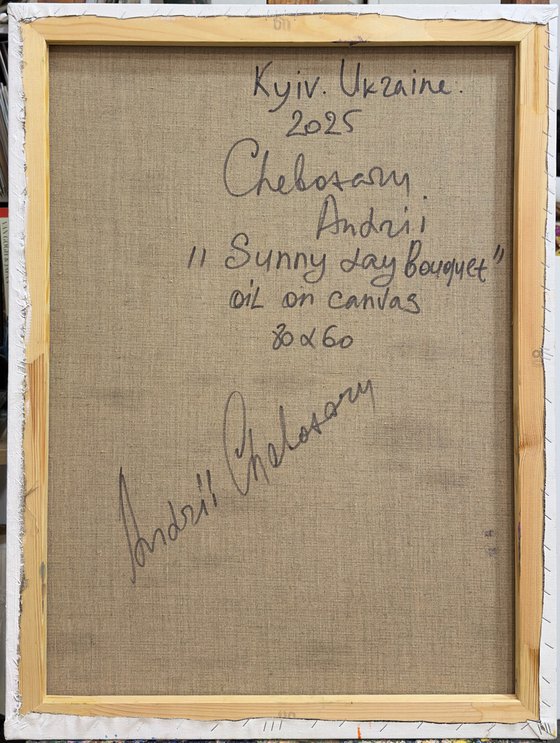 Kyiv. Ukraine.
2025
Chebotaru
Andrii
"Sunny day Bouquet"
oil on canvas
80x60
Andrii Chebotaru